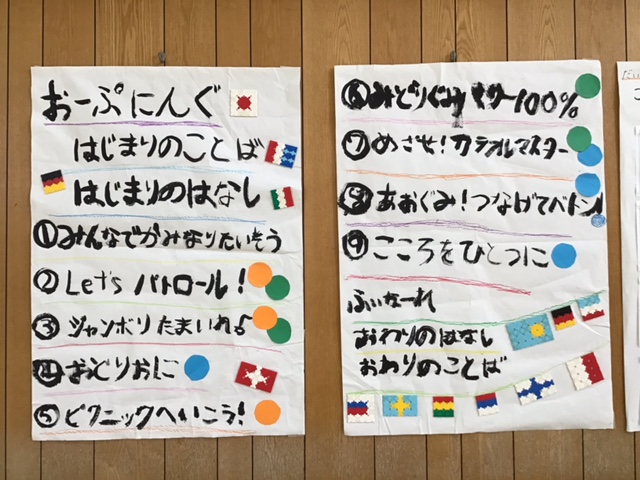 おーぷにんぐ
はじまりのことば
はじまりのはなし
①みんなでかみなりたいそう
②Let's パトロール!
③ジャンボリたまいれ♪
④おどりおに
⑤ピクニックへいこう!
⑥みどりぐみパワー100%
⑦めざせ!カラフルマスター
⑧あおぐみ!つなげてバトン
⑨こころをひとつに
ふぃなーれ
おわりのはなし
おわりのことば